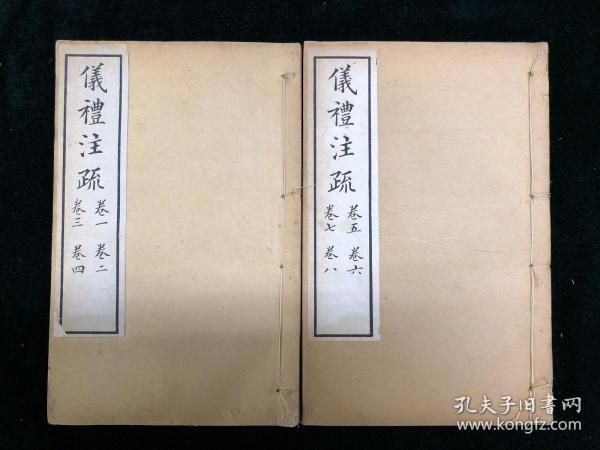 儀禮注疏
卷一 卷二
卷三 卷四
儀禮注疏
卷五 卷六
卷七 卷八
孔夫子旧书网
www.kongfz.com